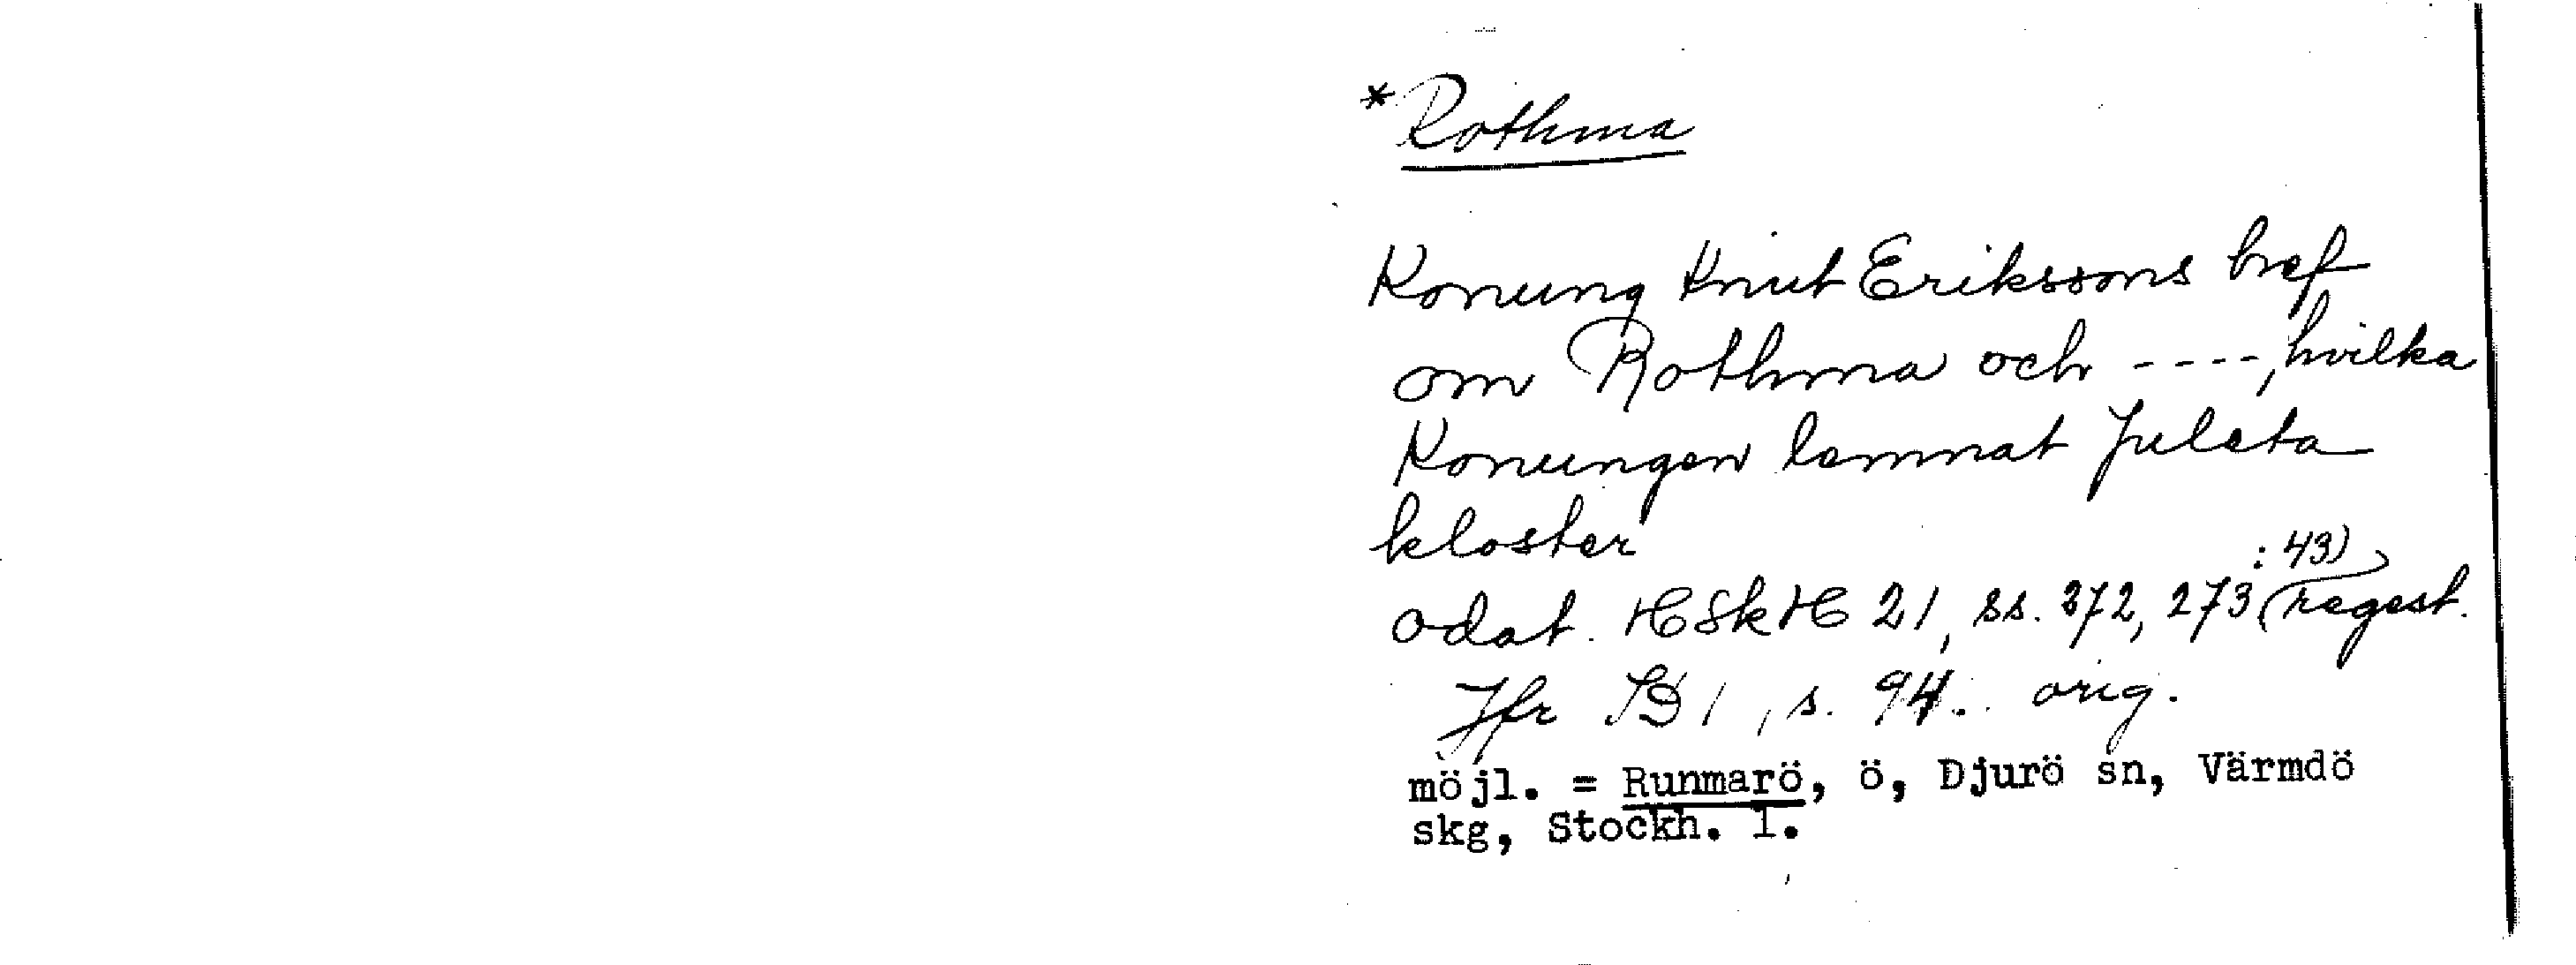 *Rothma
Konung Knut Erikssons bref
om Rothma och ----, hvilka
Konungen lemnat Juleta
kloster
odat. HSkH 21, ss. 272, 273 (regest.
: 43)
Jfr SD 1, s. 94. orig.
möjl. = Runmarö, ö, Djurö sn, Värmdö
skg, Stockh. l.